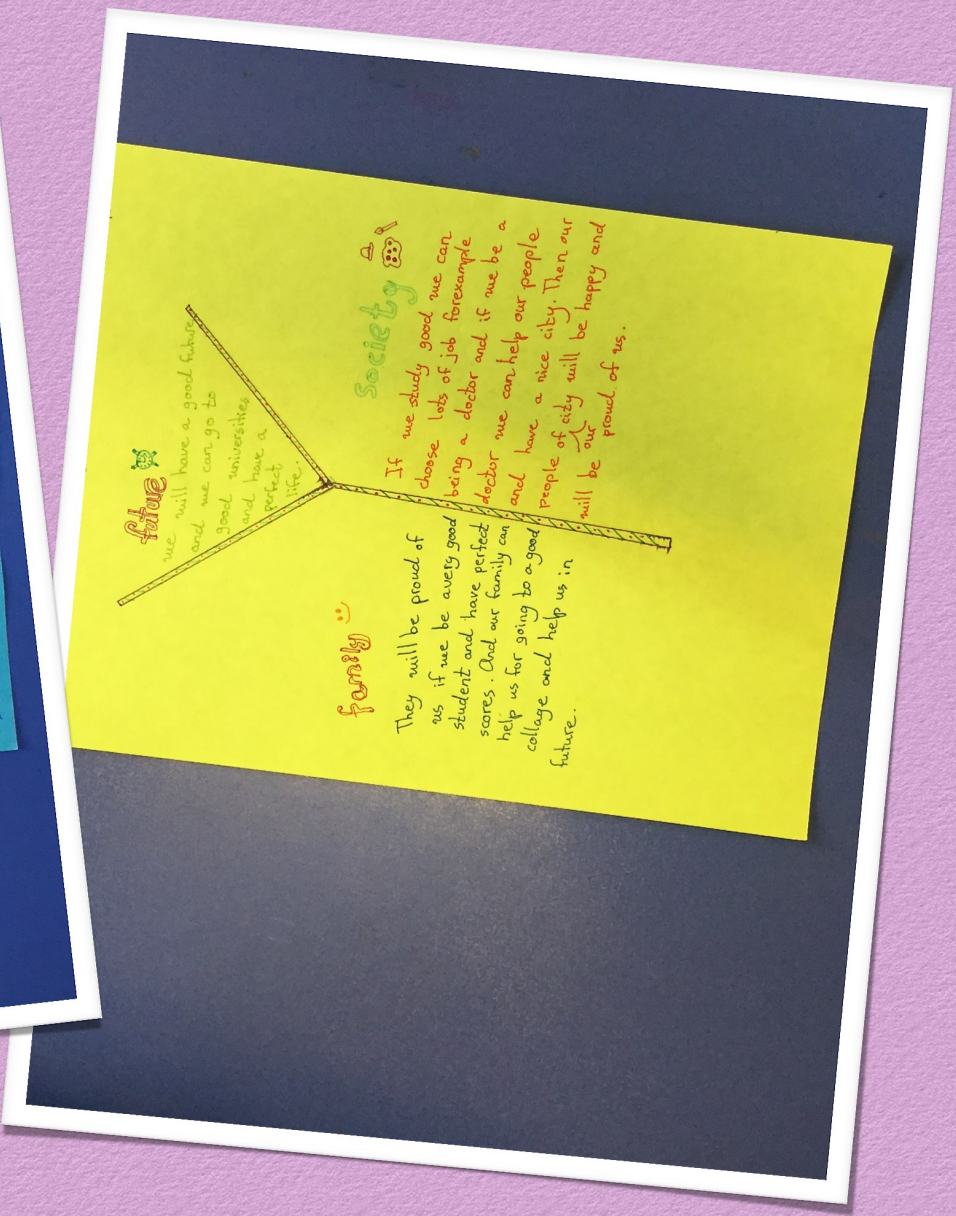 future
we will have a good future
and we can go to
good universities
and have a
perfect
life.
family
They will be proud of
us if we be avery good
student and have perfect
scores. And our family can
help us for going to a good
collage and help us in
future.
Society
If we study good we can
choose lots of job forexample
being a doctor and if we be a
doctor we can help our people
and have a nice city. Then our
people of our city will be happy and
will be proud of us.